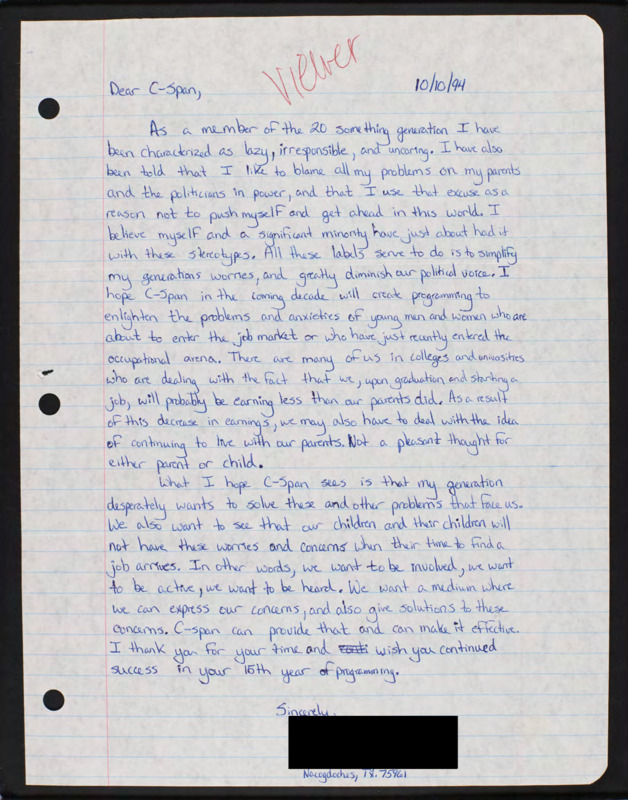 Viewer
Dear C-Span,
10/10/94
As a member of the 20 something generation I have
been characterized as lazy, irresponsible, and uncaring. I have also
been told that I like to blame all my problems on my parents
and the politicians in power, and that I use that excuse as a
reason not to push myself and get ahead in this world. I
believe myself and a significant minority have just about had it
with these stereotypes. All these labels serve to do is to simplify
my generations worries, and greatly diminish our political voice. I
hope C-Span in the coming decade will create programming to
enlighten the problems and anxieties of young men and women who are
about to enter the job market or who have just recently entered the
occupational arena. There are many of us in colleges and universities
who are dealing with the fact that we, upon graduation and starting a
job, will probably be earning less than our parents did. As a result
of this decrease in earnings, we may also have to deal with the idea
of continuing to live with our parents. Not a pleasant thought for
either parent or child.
What I hope C-Span sees is that my generation
desperately wants to solve these and other problems that face us.
We also want to see that our children and their children will
not have these worries and concerns when their time to find a
job arrives. In other words, we want to be involved, we want
to be active, we want to be heard. We want a medium where
we can express our concerns, and also give solutions to these
concerns. C-span can provide that and can make it effective.
I thank you for your time and wish you continued
success in your 15th year of programming.
Sincerely,
Nacogdoches, TX. 75961